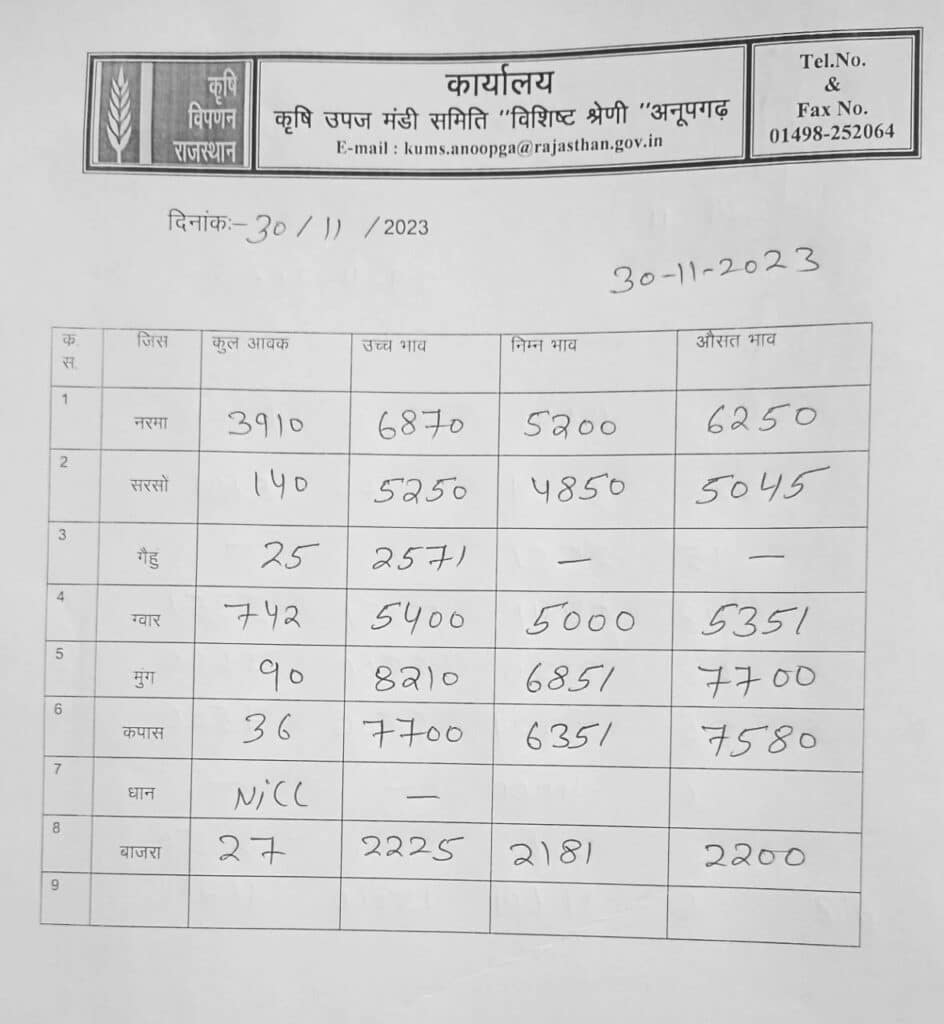 कृषि
विपणन
राजस्थान
कार्यालय
कृषि उपज मंडी समिति "विशिष्ट श्रेणी "अनूपगढ़
E-mail : kums.anoopga@rajasthan.gov.in
Tel.No.
&
Fax No.
01498-252064
दिनांकः- 30 / 11 / 2023
30-11-2023
क. स. जिंस कुल आवक उच्च भाव निम्न भाव औसत भाव
1 नरमा 3910 6870 5200 6250
2 सरसो 140 5250 4850 5045
3 गैहु 25 2571 — —
4 ग्वार 742 5400 5000 5351
5 मुंग 90 8210 6851 7700
6 कपास 36 7700 6351 7580
7 धान Nill —
8 बाजरा 27 2225 2181 2200
9